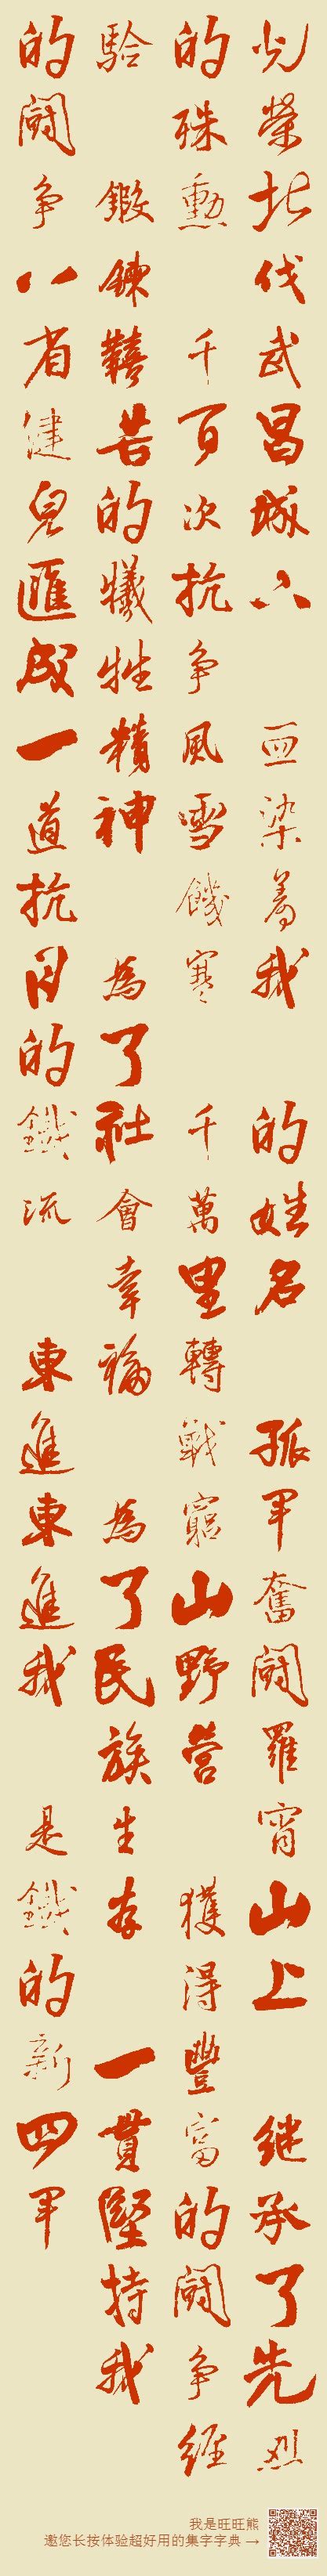 光榮北伐武昌城八 血染着我 的姓名 孤軍奮鬪羅霄山上 继承了先烈
的殊勳 千百次抗争風雪饑寒 千萬里轉戰窮山野营 獲得豐富的鬪争經
驗 鍛鍊艱苦的犧牲精神 為了社會幸福 為了民族生存 一貫堅持我
的鬪争八省健兒匯成一道抗日的鐵流 東進東進我 是鐵的新四軍
我是旺旺熊
邀您长按体验超好用的集字字典 →